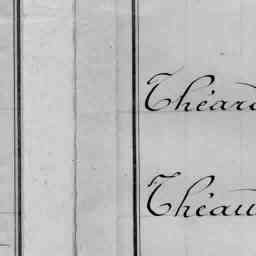 Théard
Théau